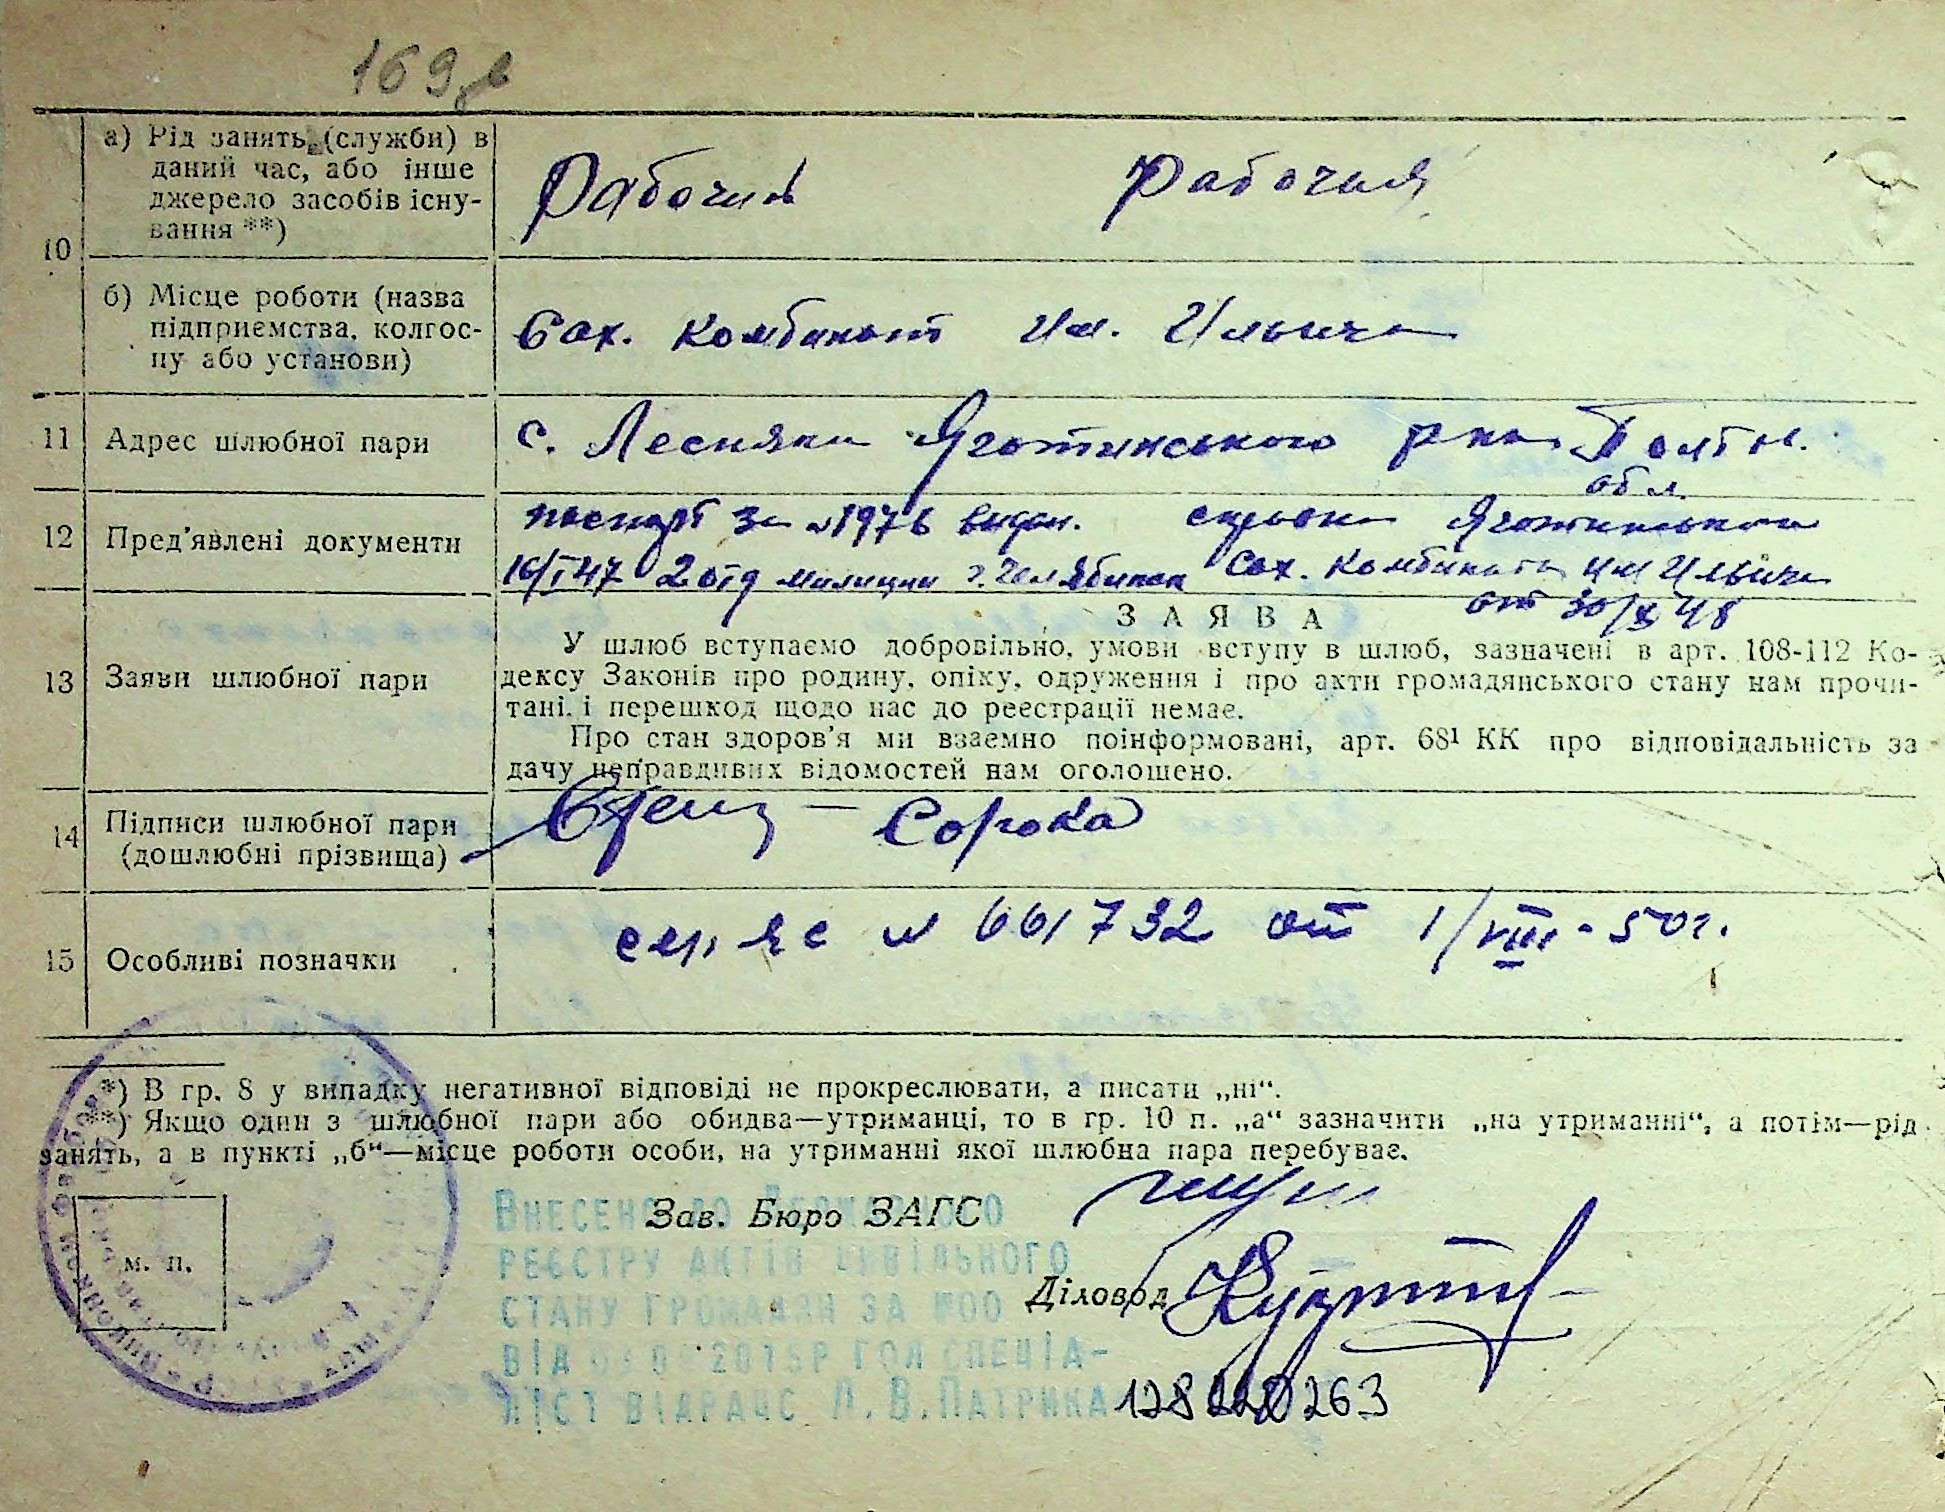 169
а) Рід занять (служби) в
даний час, або інше
джерело засобів існу-
вання **)
Рабочий Рабочая
10
б) Місце роботи (назва
підприємства, колгос-
пу або установи)
Сах. Комбинат Им. Ильича
11 Адрес шлюбної пари
с. Лесняки Яготинського р-на Полт.
обл.
12 Пред’явлені документи
паспорт за № 1976 выдан.
16/I 47 2 отд милиции г. Челябинск
справка Яготинського
Сах. Комбината им Ильича
от 30/X 48
13 Заяви шлюбної пари
ЗАЯВА
У шлюб вступаємо добровільно, умови вступу в шлюб, зазначені в арт. 108-112 Ко-
дексу Законів про родину, опіку, одруження і про акти громадянського стану нам прочи-
тані, і перешкод щодо нас до реєстрації немає.
Про стан здоров’я ми взаємно поінформовані, арт. 68¹ КК про відповідальність за
дачу неправдивих відомостей нам оголошено.
14 Підписи шлюбної пари
(дошлюбні прізвища)
Сорока
15 Особливі позначки
№ 661732 от 1/VIII-50г.
*) В гр. 8 у випадку негативної відповіді не прокреслювати, а писати „ні“.
**) Якщо один з шлюбної пари або обидва—утриманці, то в гр. 10 п. „а“ зазначити „на утриманні“, а потім—рід
занять, а в пункті „б“—місце роботи особи, на утриманні якої шлюбна пара перебуває.
Зав. Бюро ЗАГС
м. п.
Діловод
Внесено до Державного
реєстру актів цивільного
стану громадян за №00
від 2015р гол специа-
ліст відрацс Л. В. Патрика